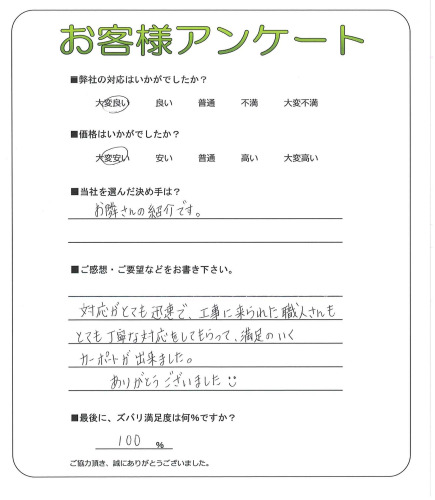 お客様アンケート
■弊社の対応はいかがでしたか？
大変良い 良い 普通 不満 大変不満
■価格はいかがでしたか？
大変安い 安い 普通 高い 大変高い
■当社を選んだ決め手は？
お隣さんの紹介です。
■ご感想・ご要望などをお書き下さい。
対応がとても迅速で、工事に来られた職人さんも
とても丁寧な対応をしてもらって、満足のいく
カーポートが出来ました。
ありがとうございました
■最後に、ズバリ満足度は何％ですか？
100 %
ご協力頂き、誠にありがとうございました。